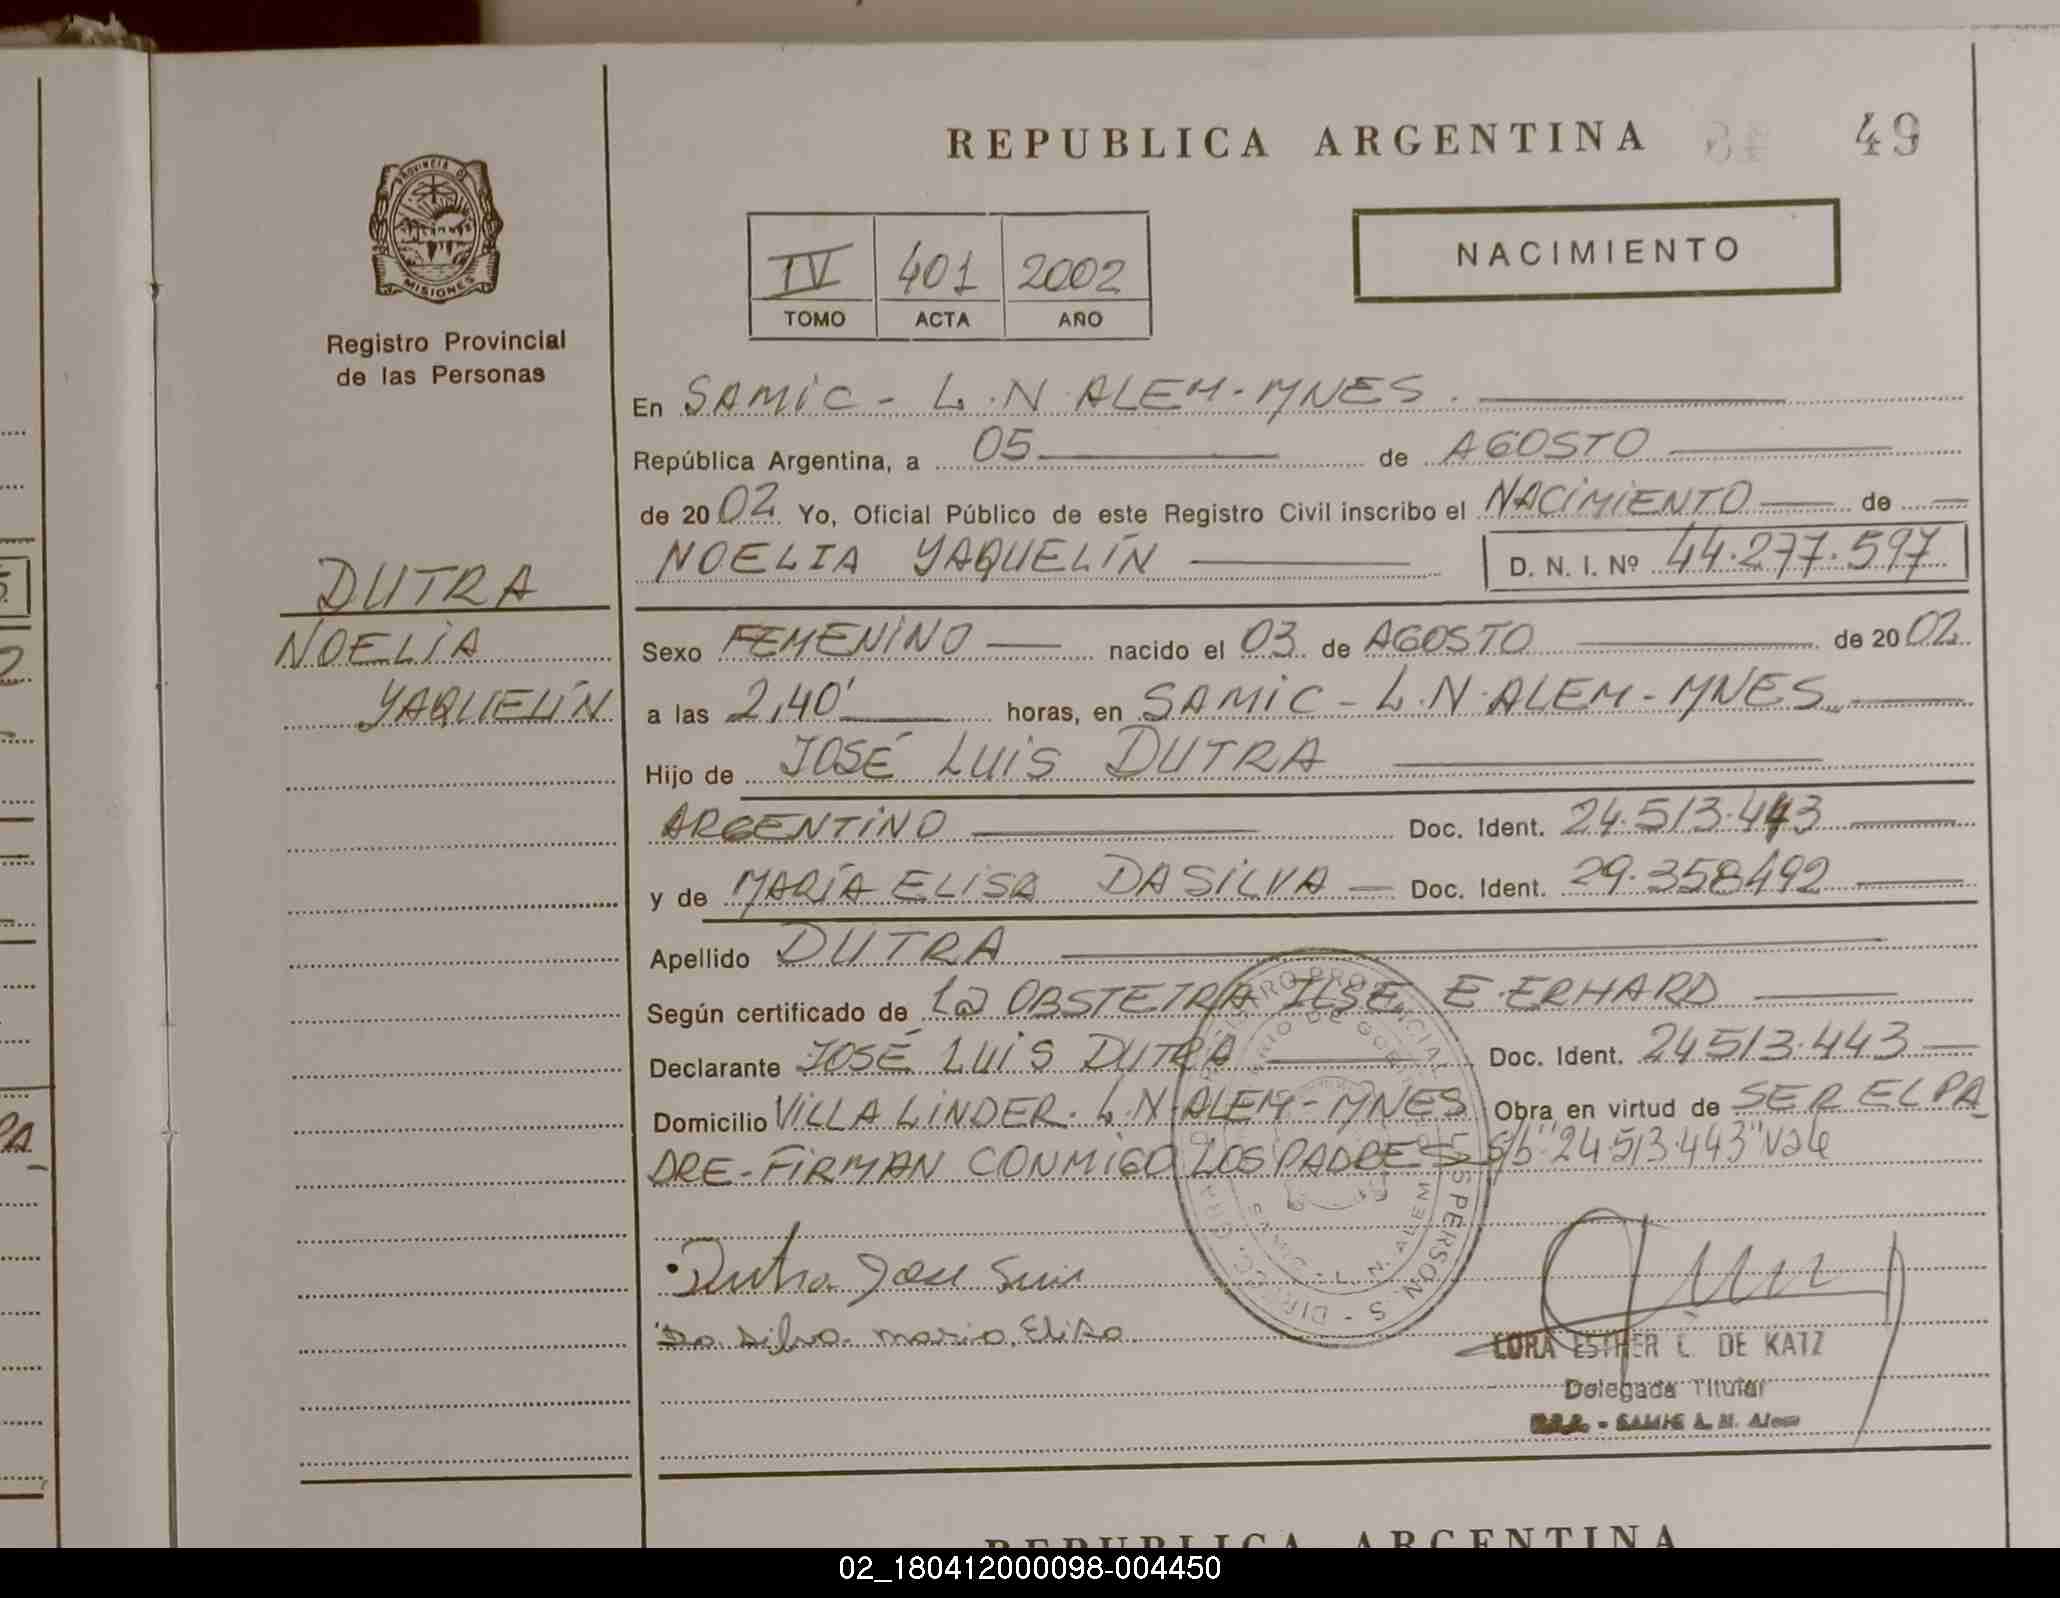 REPUBLICA ARGENTINA 49
PROVINCIA DE
MISIONES
Registro Provincial
de las Personas
NACIMIENTO
IV 401 2002
TOMO ACTA AÑO
En SAMIC - L.N. ALEM - MNES.
República Argentina, a 05 de AGOSTO
de 2002. Yo, Oficial Público de este Registro Civil inscribo el NACIMIENTO de
NOELIA YAQUELÍN D. N. I. Nº 44.277.597
DUTRA
NOELIA
YAQUELÍN
Sexo FEMENINO nacido el 03 de AGOSTO de 2002
a las 2,40' horas, en SAMIC - L.N. ALEM - MNES
Hijo de JOSÉ LUIS DUTRA
ARGENTINO Doc. Ident. 24.513.443
y de MARÍA ELISA DA SILVA Doc. Ident. 29.358.492
Apellido DUTRA
Según certificado de la OBSTETRA ILSE E. ERHARD
Declarante JOSÉ LUIS DUTRA Doc. Ident. 24513.443
Domicilio VILLA LINDER. L.N. ALEM - MNES Obra en virtud de SER EL PA
DRE - FIRMAN CONMIGO LOS PADRES S/b "24.513.443" Vale
Dutra Jose Luis
Da Silva Maria, Elisa
LORA ESTHER L. DE KATZ
Delegada Titular
SAMIC L. N. Alem
REPUBLICA ARGENTINA
02_180412000098-004450